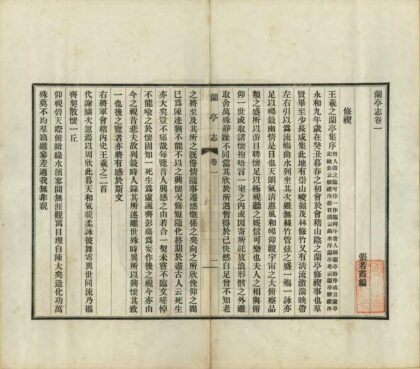 蘭亭志卷一
張若霞編
修禊
王羲之蘭亭集序
永和九年歲在癸丑暮春之初會於會稽山陰之蘭亭修禊事也羣
賢畢至少長咸集此地有崇山峻嶺茂林修竹又有清流激湍映帶
左右引以為流觴曲水列坐其次雖無絲竹管弦之盛一觴一詠亦
足以暢敘幽情是日也天朗氣清惠風和暢仰觀宇宙之大俯察品
類之盛所以游目騁懷足以極視聽之娛信可樂也夫人之相與俯
仰一世或取諸懷抱晤言一室之內或因寄所託放浪形骸之外雖
取舍萬殊靜躁不同當其欣於所遇暫得於己快然自足曾不知老
蘭亭志 卷一 一
之將至及其所之既倦情隨事遷感慨係之矣向之所欣俛仰之間
已為陳迹猶不能不以之興懷况脩短隨化終期於盡古人云死生
亦大矣豈不痛哉每覽昔人興感之由若合一契未嘗不臨文嗟悼
不能喻之於懷固知一死生為虛誕齊彭殤為妄作後之視今亦由
今之視昔悲夫故列敘時人錄其所述雖世殊時異所以興懷其致
一也後之覽者亦將有感於斯文
右將軍會稽內史王羲之二首
代謝鱗次忽焉以周欣此暮春和氣載柔詠彼舞雩異世同流乃攜
齊契散懷一丘
仰視碧天際俯瞰綠水濱寥闃無涯觀寓目理自陳大矣造化功萬
殊莫不均羣籟雖參差適我無非親